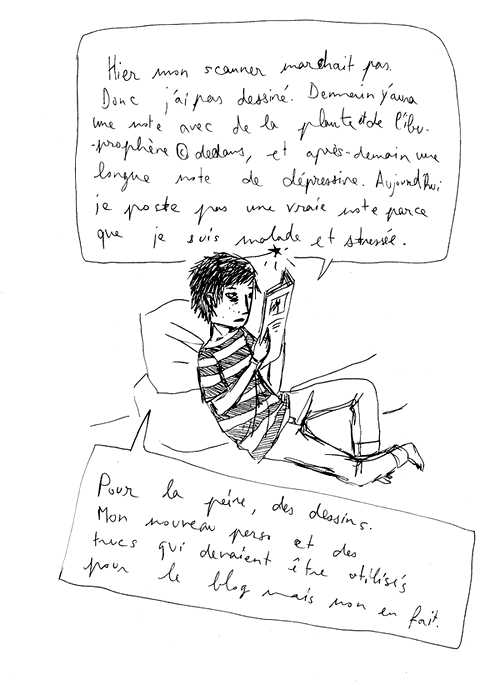 Hier mon scanner marchait pas.
Donc j'ai pas dessiné. Demmain y'aura
une note avec de la plante et de l'ibu-
-prophène © dedans, et après-demain une
longue note de dépressive. Aujourd'hui
je poste pas une vraie note parce
que je suis malade et stressée.
Pour la peine, des dessins.
Mon nouveau perso et des
trucs qui devaient être utilisés
pour le blog mais non en fait.